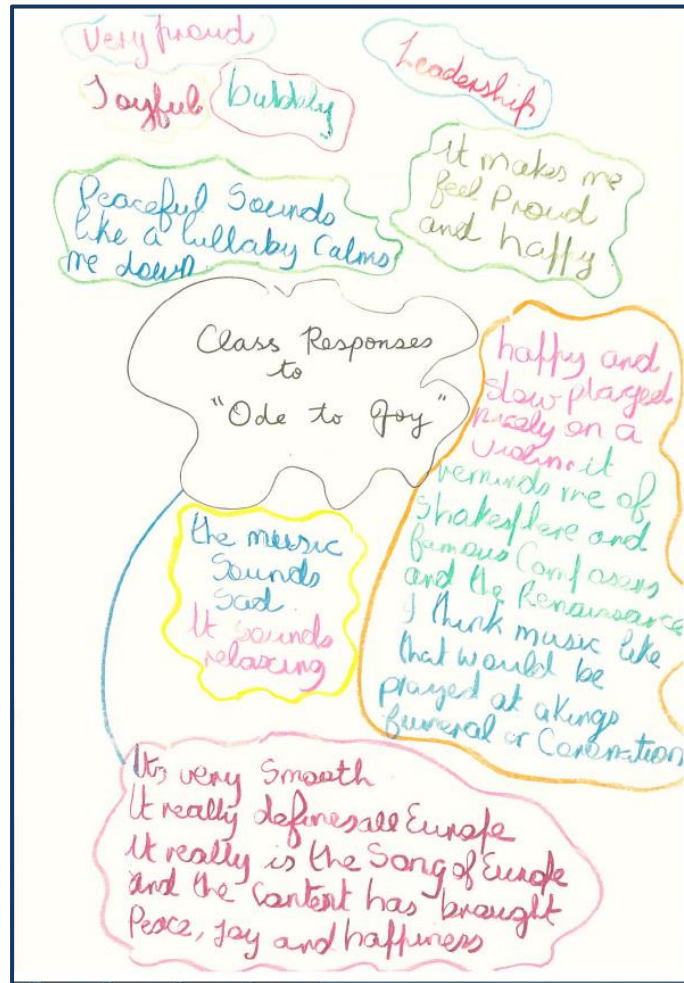 Very proud
Joyful
bubbly
Leadership
it makes me
feel Proud
and happy
Peaceful Sounds
like a lullaby Calms
me down
Class Responses
to
"Ode to Joy"
happy and
slow played
nicely on a
violin. it
reminds me of
Shakesphere and
famous Composers
and the Renaissance
I think music like
that would be
prayed at a kings
funeral or Coronation
the music
Sounds
Sad.
It sounds
relaxing
Its very Smooth
It really defines all Europe
it really is the Song of Europe
and the content has brought
Peace, Joy and happiness